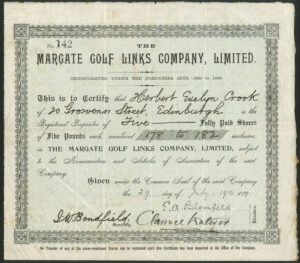 No. 142
THE
MARGATE GOLF LINKS COMPANY, LIMITED.
INCORPORATED UNDER THE COMPANIES ACTS, 1862 to 1898.
This is to Certify that Herbert Evelyn Crook
of 20 Grosvenor Street Edinburgh is
the Registered Proprietor of Five Fully Paid Shares
of Five Pounds each numbered 178 to 182 inclusive
in THE MARGATE GOLF LINKS COMPANY, LIMITED, subject
to the Memorandum and Articles of Association of the said
Company.
Given under the Common Seal of the said Company
the 29 day of July
Directors.
Secretary.
No Transfer of any of the above-mentioned Shares can be registered until this Certificate has been deposited at the Office of the Company.